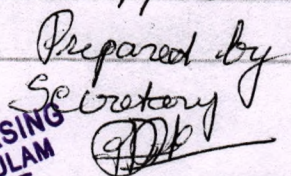 Prepared by
Secretary
SING
ULAM